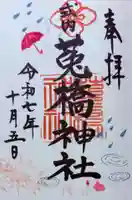 奉拝
菟橋神社
令和七年
十月五日